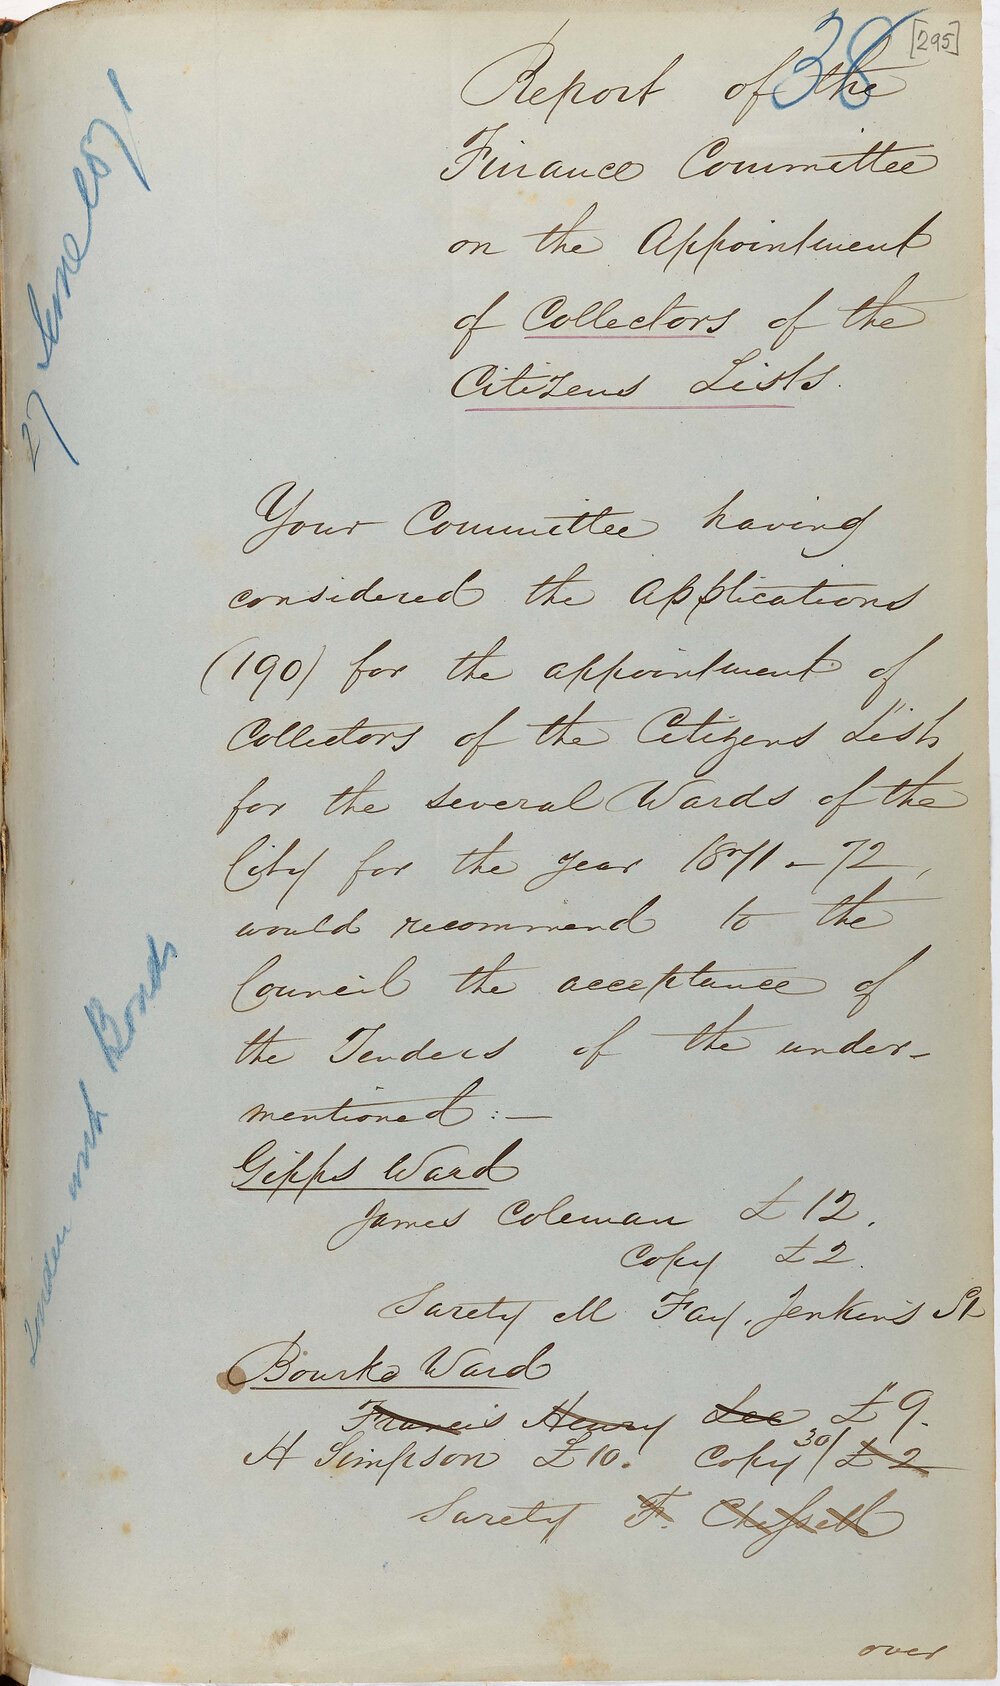 38
[295]
Report of the
Finance Committee
on the Appointment
of Collectors of the
Citizens Lists.
27 June 1871
Your Committee having
considered the applications
(190) for the appointment of
Collectors of the Citizens Lists
for the several Wards of the
City for the year 1871-72,
would recommend to the
Council the acceptance of
the Tenders of the under-
mentioned:—
Bonds
Gipps Ward
James Coleman £12.
Copy £2.
Surety M Fay, Jenkins St
Bourke Ward
Francis Henry Lee £9.
H Simpson £10. Copy 30/ £2
Surety F. Chessell
over